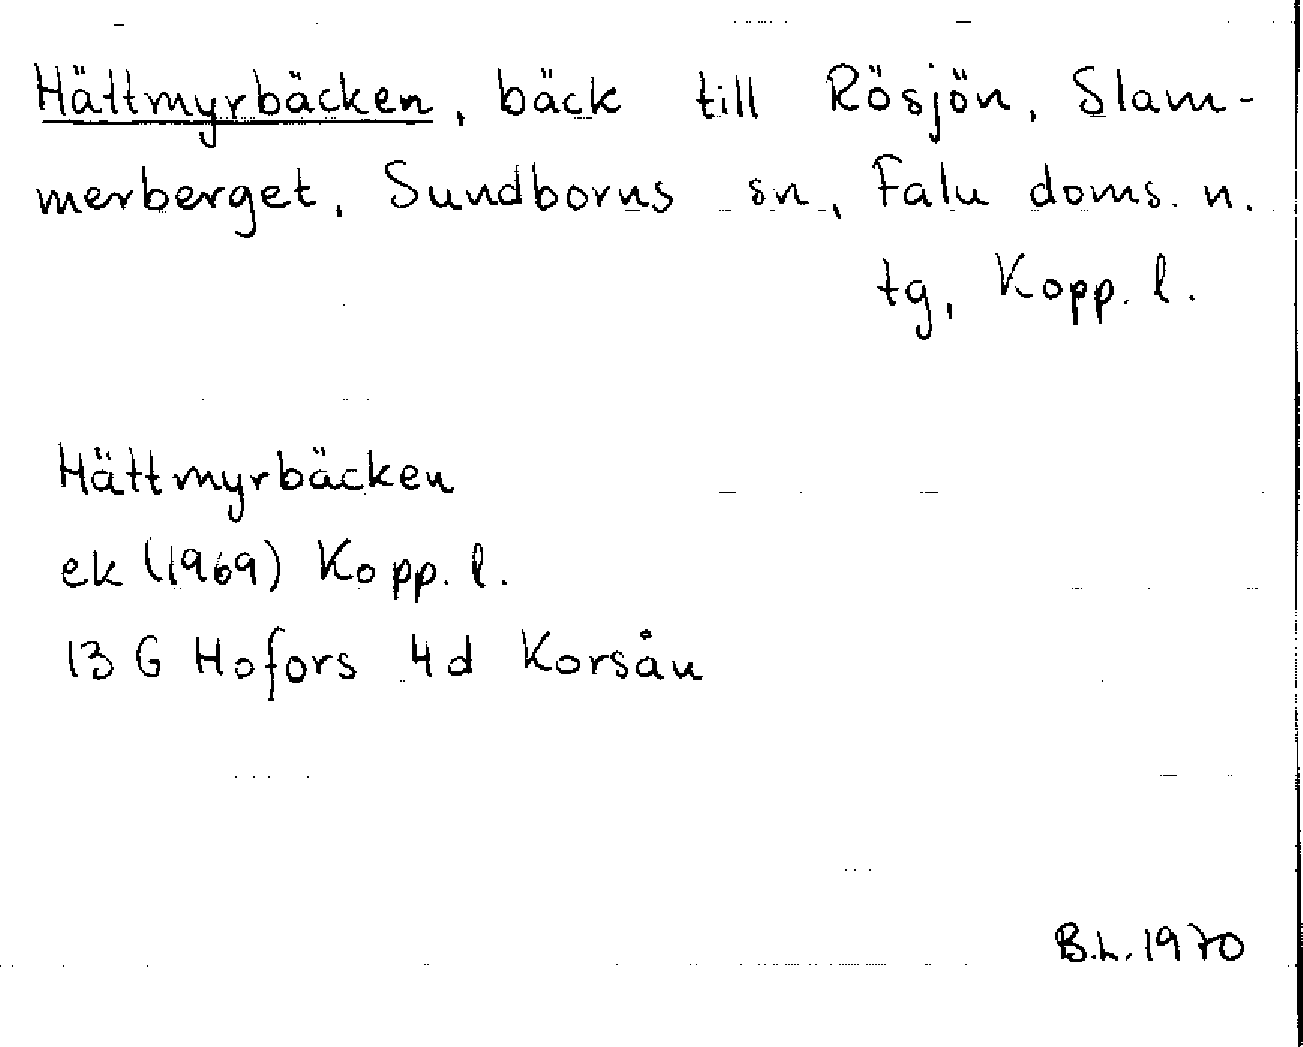 Hättmyrbäcken, bäck till Rösjön, Slam-
merberget, Sundborns sn, Falu doms. n.
tg, Kopp. l.
Hättmyrbäcken
ek (1969) Kopp. l.
13 G Hofors 4d Korsån
B.L. 1970